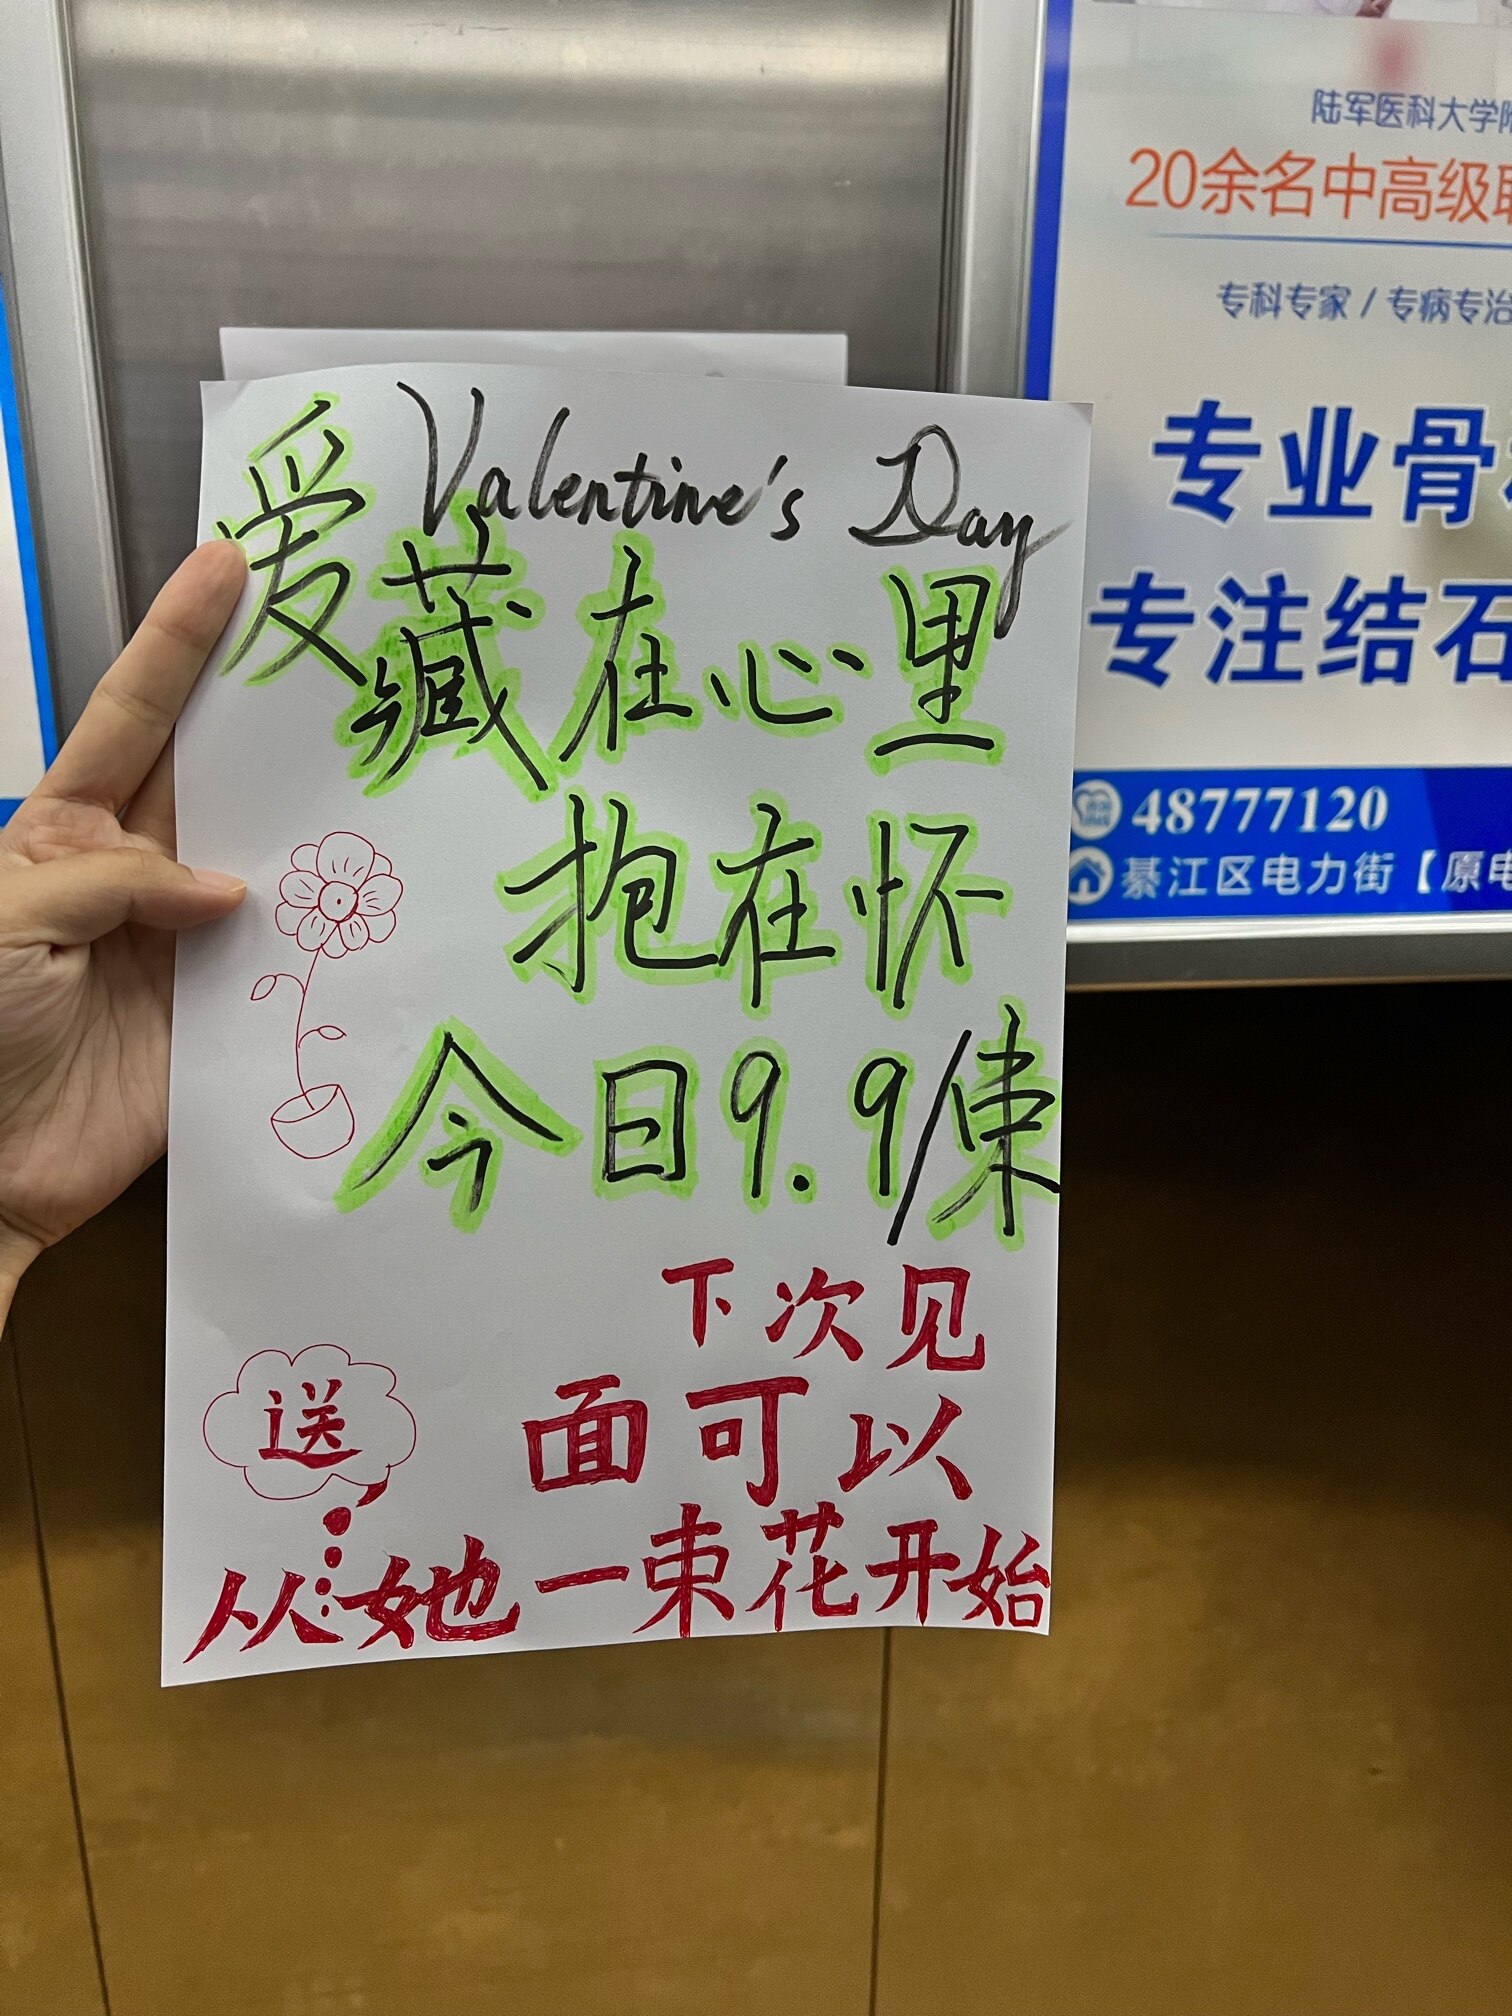 Valentine's Day
爱藏在心里
抱在怀
今日9.9/束
下次见
面可以
送
从她一束花开始
陆军医科大学
20余名中高级
专科专家/专病专治
专业骨
专注结石
48777120
綦江区电力街【原电